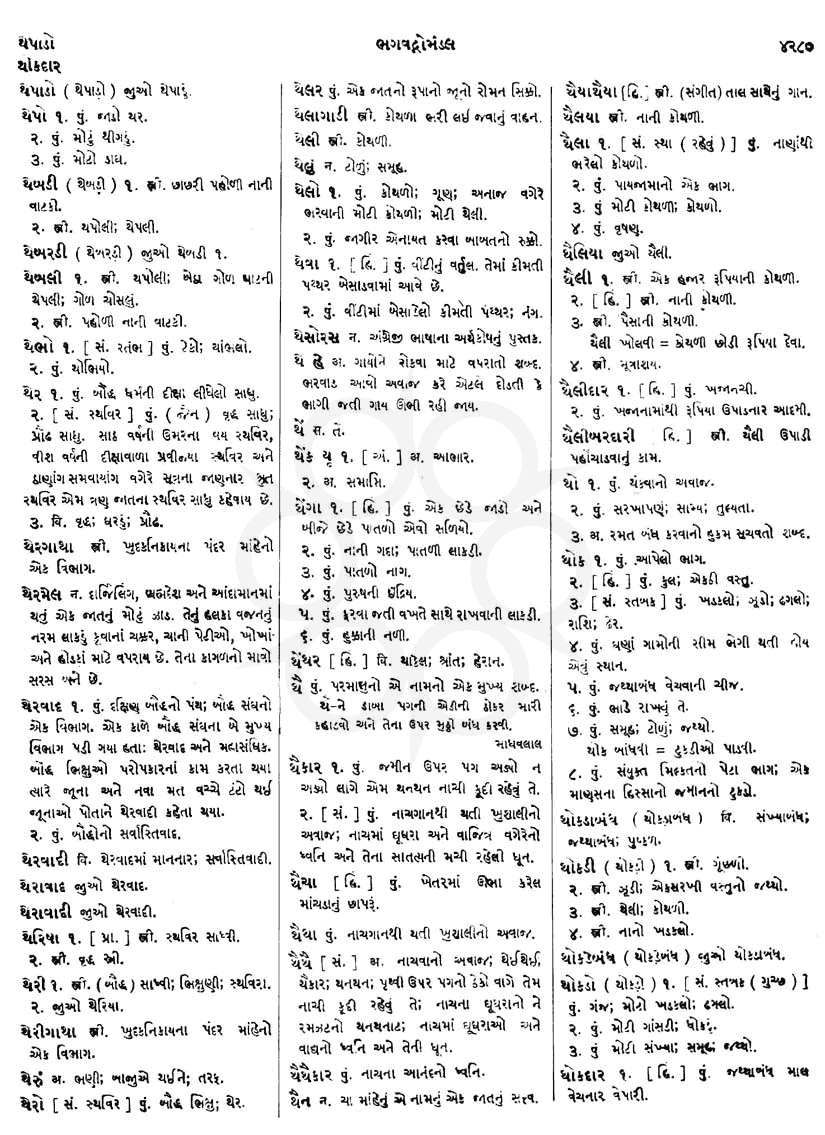 થેપાડો
ભગવદ્ગોમંડલ
૪૨૮૭
થોકદાર
થેપાડો ( થેપાડો ) જુઓ થેપાડું.
થેપો ૧. પું. જાડો થર.
૨. પું. મોટું થીગડું.
૩. પું. મોટો ડાઘ.
થેબડી ( થેબડી ) ૧. સ્ત્રી. છાછરી પહોળી નાની
વાટકી.
૨. સ્ત્રી. થપોલી; થેપલી.
થેબરડી ( થેબરડી ) જુઓ થેબડી ૧.
થેબલી ૧. સ્ત્રી. થપોલી; બેઠા ગોળ ઘાટની
થેપલી; ગોળ ચોસલું.
૨. સ્ત્રી. પહોળી નાની વાટકી.
થેભો ૧. [ સં. સ્તંભ ] પું. ટેકો; થાંભલો.
૨. પું. થોભિયો.
થેર ૧. પું. બૌદ્ધ ધર્મની દીક્ષા લીધેલો સાધુ.
૨. [ સં. સ્થવિર ] પું. ( જૈન ) વૃદ્ધ સાધુ;
પ્રૌઢ સાધુ. સાઠ વર્ષની ઉમરના વય સ્થવિર,
વીશ વર્ષની દીક્ષાવાળા પ્રવીજ્યા સ્થવિર અને
ઠાણાંગ સમવાયાંગ વગેરે સૂત્રના જાણનાર શ્રુત
સ્થવિર એમ ત્રણ જાતના સ્થવિર સાધુ કહેવાય છે.
૩. વિ. વૃદ્ધ; ઘરડું; પ્રૌઢ.
થેરગાથા સ્ત્રી. ખુદ્દકનિકાયના પંદર માંહેનો
એક વિભાગ.
થેરમેલ ન. દાર્જિલિંગ, બ્રહ્મદેશ અને આંદામાનમાં
થતું એક જાતનું મોટું ઝાડ. તેનું હલકા વજનનું
નરમ લાકડું કૂવાનાં ચક્કર, ચાની પેટીઓ, ખોખાં
અને હોડકાં માટે વપરાય છે. તેના કાગળનો માવો
સરસ બને છે.
થેરવાદ ૧. પું. દક્ષિણ બૌદ્ધનો પંથ; બૌદ્ધ સંઘનો
એક વિભાગ. એક કાળે બૌદ્ધ સંઘના બે મુખ્ય
વિભાગ પડી ગયા હતાઃ થેરવાદ અને મહાસંધિક.
બૌદ્ધ ભિક્ષુઓ પરોપકારનાં કામ કરતા થયા
ત્યારે જૂના અને નવા મત વચ્ચે ટંટો થઈ
જૂનાઓ પોતાને થેરવાદી કહેતા થયા.
૨. પું. બૌદ્ધોનો સર્વાસ્તિવાદ.
થેરવાદી વિ. થેરવાદમાં માનનાર; સર્વાસ્તિવાદી.
થેરાવાદ જુઓ થેરવાદ.
થેરાવાદી જુઓ થેરવાદી.
થેરિષા ૧. [ પ્રા. ] સ્ત્રી. સ્થવિર સાધ્વી.
૨. સ્ત્રી. વૃદ્ધ સ્ત્રી.
થેરી ૧. સ્ત્રી. ( બૌદ્ધ ) સાધ્વી; ભિક્ષુણી; સ્થવિરા.
૨. જુઓ થેરિયા.
થેરીગાથા સ્ત્રી. ખુદ્દકનિકાયના પંદર માંહેનો
એક વિભાગ.
થેરું અ. ભણી; બાજુએ થઈને; તરફ.
થેરો [ સં. સ્થવિર ] પું. બૌદ્ધ ભિક્ષુ; થેર.
થેલર પું. એક જાતનો રૂપાનો જૂનો રોમન સિક્કો.
થેલાગાડી સ્ત્રી. કોથળા ભરી લઈ જવાનું વાહન.
થેલી સ્ત્રી. કોથળી.
થેલું ન. ટોળું; સમૂહ.
થેલો ૧. પું. કોથળો; ગૂણ; અનાજ વગેરે
ભરવાની મોટી કોથળો; મોટી થેલી.
૨. પું. જાગીર એનાયત કરવા બાબતનો રુક્કો.
થેવા ૧. [ હિં. ] પું. વીંટીનું વર્તુલ. તેમાં કીમતી
પથ્થર બેસાડવામાં આવે છે.
૨. પું. વીંટીમાં બેસાડેલો કીમતી પથ્થર; નંગ.
થેસોરસ ન. અંગ્રેજી ભાષાના અર્થકોષનું પુસ્તક.
થે હે અ. ગાયોને રોકવા માટે વપરાતો શબ્દ.
ભરવાડ આવો અવાજ કરે એટલે દોડતી કે
ભાગી જતી ગાય ઊભી રહી જાય.
થેં સ. તે.
થેંક યૂ ૧. [ અં. ] અ. આભાર.
૨. અ. સમાપ્તિ.
થેંગા ૧. [ હિં. ] પું. એક છેડે જાડો અને
બીજે છેડે પાતળો એવો સળિયો.
૨. પું. નાની ગદા; પાતળી લાકડી.
૩. પું. પાતળો નાગ.
૪. પું. પુરુષની ઇંદ્રિય.
૫. પું. ફરવા જતી વખતે સાથે રાખવાની લાકડી.
૬. પું. હુક્કાની નળી.
થેંથર [ હિં. ] વિ. થાકેલ; શ્રાંત; હેરાન.
થૈ પું. પરમાણુનો એ નામનો એક મુખ્ય શબ્દ.
થૈ-ને ડાબા પગની એડીની ઠોકર મારી
કહાટવો અને તેના ઉપર મુઠ્ઠો બંધ કરવી.
માધવલાલ
થૈકાર ૧. પું. જમીન ઉપર પગ અડ્યો ન
અડ્યો લાગે એમ થનથન નાચી કૂદી રહેવું તે.
૨. [ સં. ] પું. નાચગાનથી થતી ખુશાલીનો
અવાજ; નાચમાં ઘૂઘરા અને વાજિંત્ર વગેરેનો
ધ્વનિ અને તેના સાતત્યની મચી રહેલી ધૂન.
થૈચા [ હિં. ] પું. ખેતરમાં ઊભા કરેલ
માંચડાનું છાપરું.
થૈથા પું. નાચગાનથી થતી ખુશાલીનો અવાજ.
થૈથૈ [ સં. ] અ. નાચવાનો અવાજ; થેઈથેઈ,
થૈકાર; થનથન; પૃથ્વી ઉપર પગનો ઠેકો વાગે તેમ
નાચી કૂદી રહેવું તે; નાચના ઘૂઘરાનો ને
રમઝટનો થનથનાટ; નાચમાં ઘૂઘરાઓ અને
વાદ્યનો ધ્વનિ અને તેની ધૂન.
થૈથૈકાર પું. નાચના આનંદનો ધ્વનિ.
થૈન ન. ચા માંહેનું એ નામનું એક જાતનું સત્ત્વ.
થૈયાથૈયા [ હિં. ] સ્ત્રી. (સંગીત) તાલ સાથેનું ગાન.
થૈલયા સ્ત્રી. નાની કોથળી.
થૈલા ૧. [ સં. સ્થા ( રહેવું ) ] પું. નાણાંથી
ભરેલો કોથળો.
૨. પું. પાયજામાનો એક ભાગ.
૩. પું મોટી કોથળી; કોથળો.
૪. પું. વૃષણ.
થૈલિયા જુઓ થૈલી.
થૈલી ૧. સ્ત્રી. એક હજાર રૂપિયાની કોથળી.
૨. [ હિં. ] સ્ત્રી. નાની કોથળી.
૩. સ્ત્રી. પૈસાની કોથળી.
થૈલી ખોલવી = કોથળી છોડી રૂપિયા દેવા.
૪. સ્ત્રી. મૂત્રાશય.
થૈલીદાર ૧. [ હિં. ] પું. ખજાનચી.
૨. પું. ખજાનામાંથી રૂપિયા ઉપાડનાર આદમી.
થૈલીબરદારી હિં. ] સ્ત્રી. થૈલી ઉપાડી
પહોંચાડવાનું કામ.
થો ૧. પું. થૂંકવાનો અવાજ.
૨. પું. સરખાપણું; સામ્ય; તુલ્યતા.
૩. અ. રમત બંધ કરવાનો હુકમ સૂચવતો શબ્દ.
થોક ૧. પું. આપેલો ભાગ.
૨. [ હિં. ] પું. કુલ; એકઠી વસ્તુ.
૩. [ સં. સ્તબક ] પું. ખડકલો; ઝૂડો; ઢગલો;
રાશિ; ઢેર.
૪. પું. ઘણાં ગામોની સીમ ભેગી થતી હોય
એવું સ્થાન.
૫. પું. જથ્થાબંધ વેચવાની ચીજ.
૬. પું. ભાડે રાખવું તે.
૭. પું. સમૂહ; ટોળું; જથ્થો.
થોક બાંધવી = ટુકડીઓ પાડવી.
૮. પું. સંયુક્ત મિલ્કતનો પેટા ભાગ; એક
માણસના હિસ્સાનો જમીનનો ટુકડો.
થોકડાબંધ ( થોકડાબંધ ) વિ. સંખ્યાબંધ;
જથ્થાબંધ; પુષ્કળ.
થોકડી ( થોકડી ) ૧. સ્ત્રી. ગૂંછળી.
૨. સ્ત્રી. ઝૂડી; એકસરખી વસ્તુનો જથ્થો.
૩. સ્ત્રી. થેલી; કોથળી.
૪. સ્ત્રી. નાનો ખડકલો.
થોકડેબંધ ( થોકડેબંધ ) જુઓ થોકડાબંધ.
થોકડો ( થોકડો ) ૧. [ સં. સ્તબક ( ગુચ્છ ) ]
પું. ગંજ; મોટો ખડકલો; ઢગલો.
૨. પું. મોટી ગાંસડી; ધોકડું.
૩. પું મોટી સંખ્યા; સમૂહ; જથ્થો.
થોકદાર ૧. [ હિં. ] પું. જથ્થાબંધ માલ
વેચનાર વેપારી.